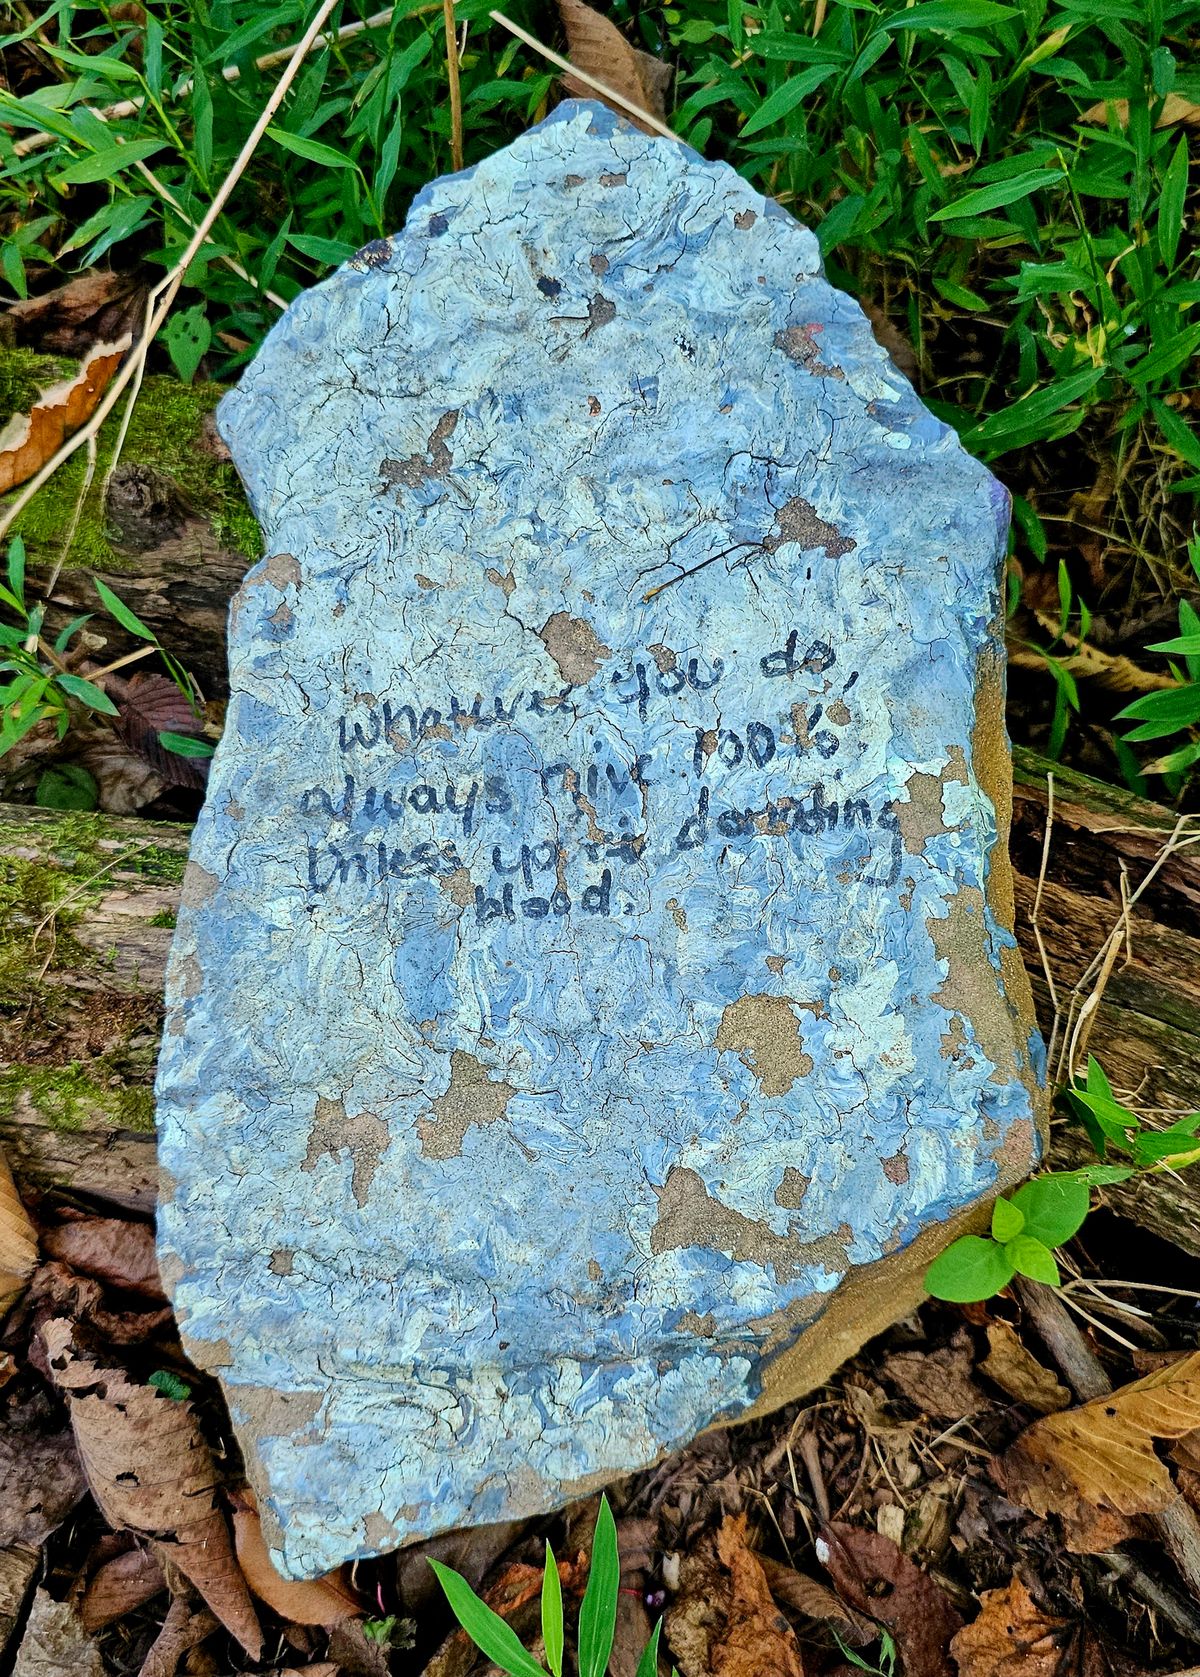 Whatever you do,
always give 100%.
Unless your donating
blood.